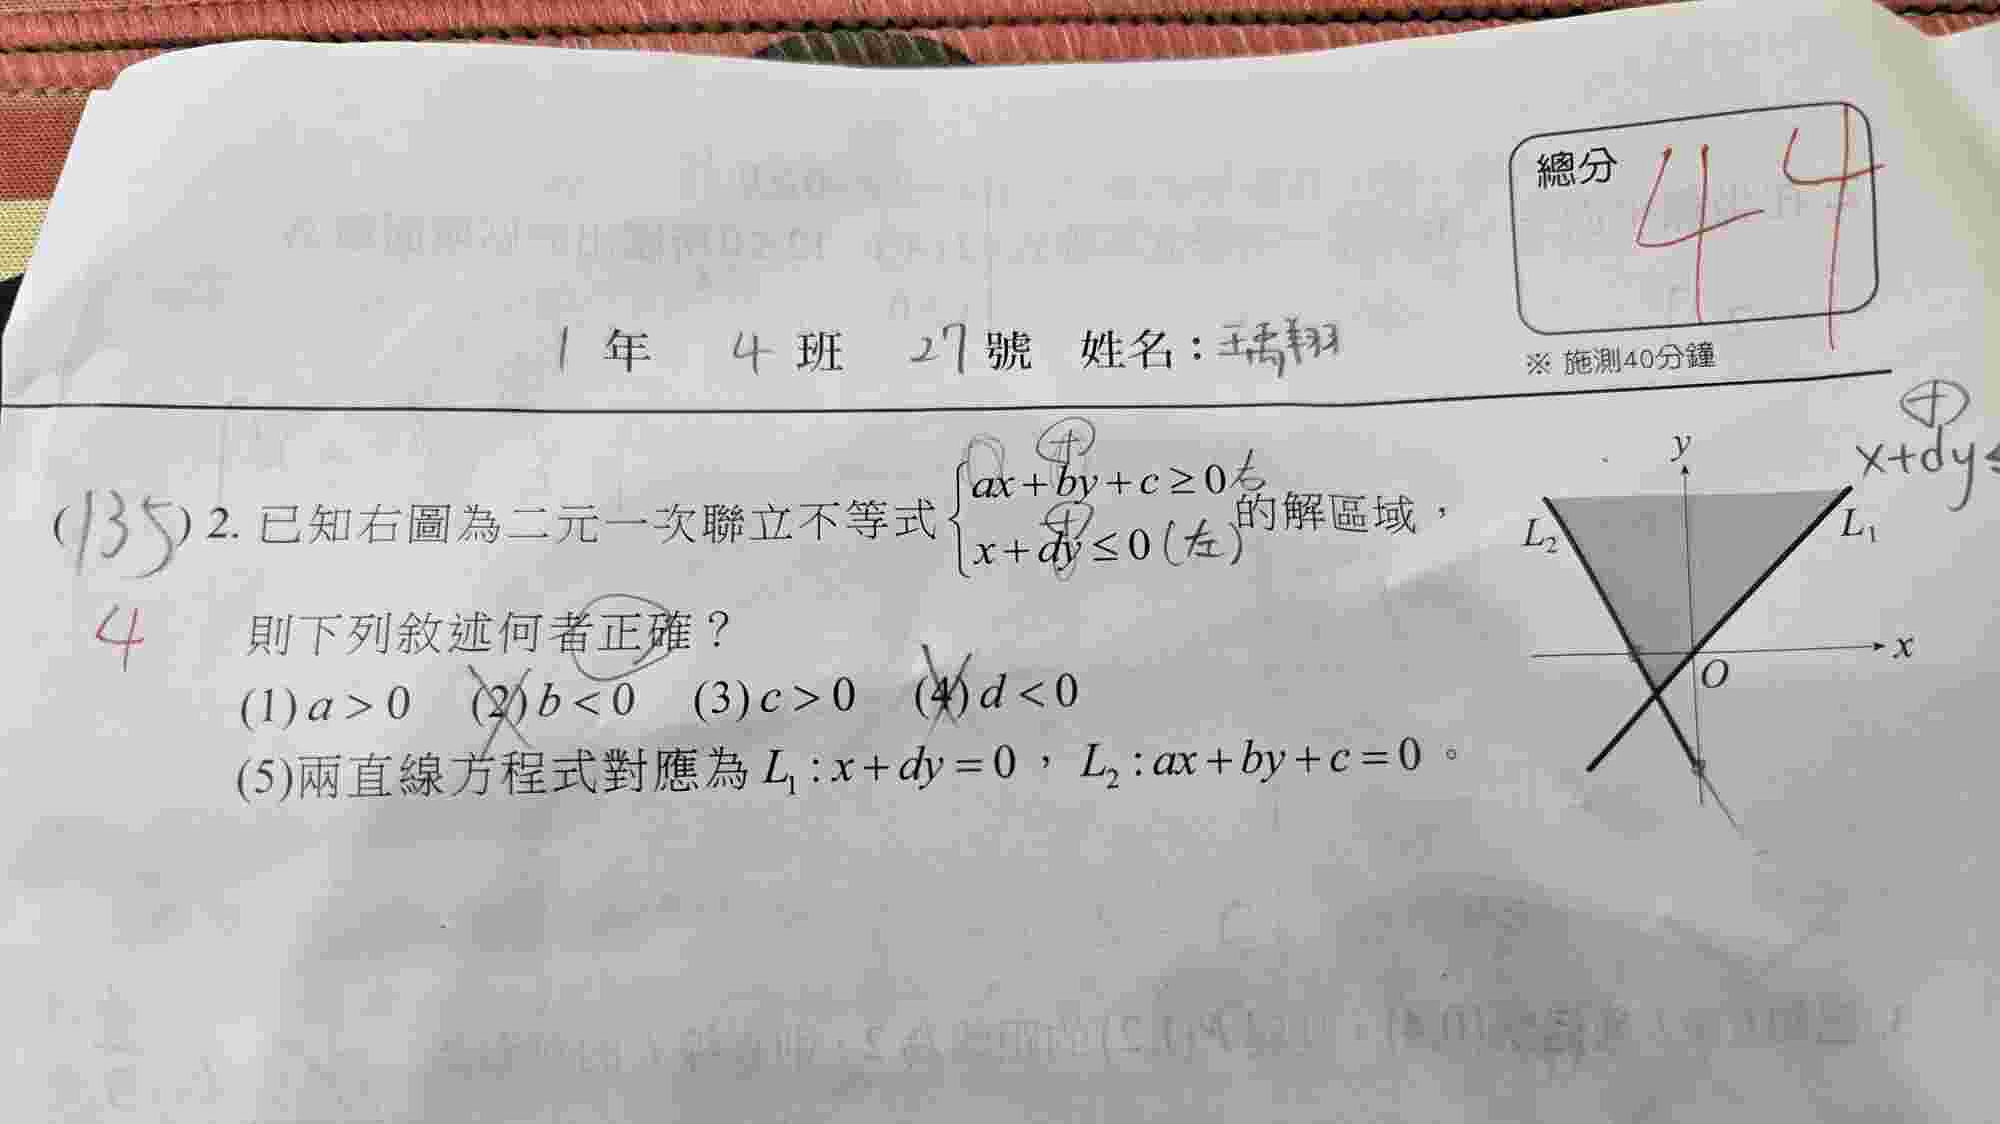 總分 44
1 年 4 班 27 號 姓名：瑀翔
※ 施測40分鐘
(135) 2. 已知右圖為二元一次聯立不等式 { ax+by+c≥0 右
x+dy≤0 (左) 的解區域，
+ +
4
則下列敘述何者正確？
(1) a>0 (2) b<0 (3) c>0 (4) d<0
(5)兩直線方程式對應為 L₁:x+dy=0，L₂:ax+by+c=0。
+
x+dy≤
y
L₂
L₁
x
O